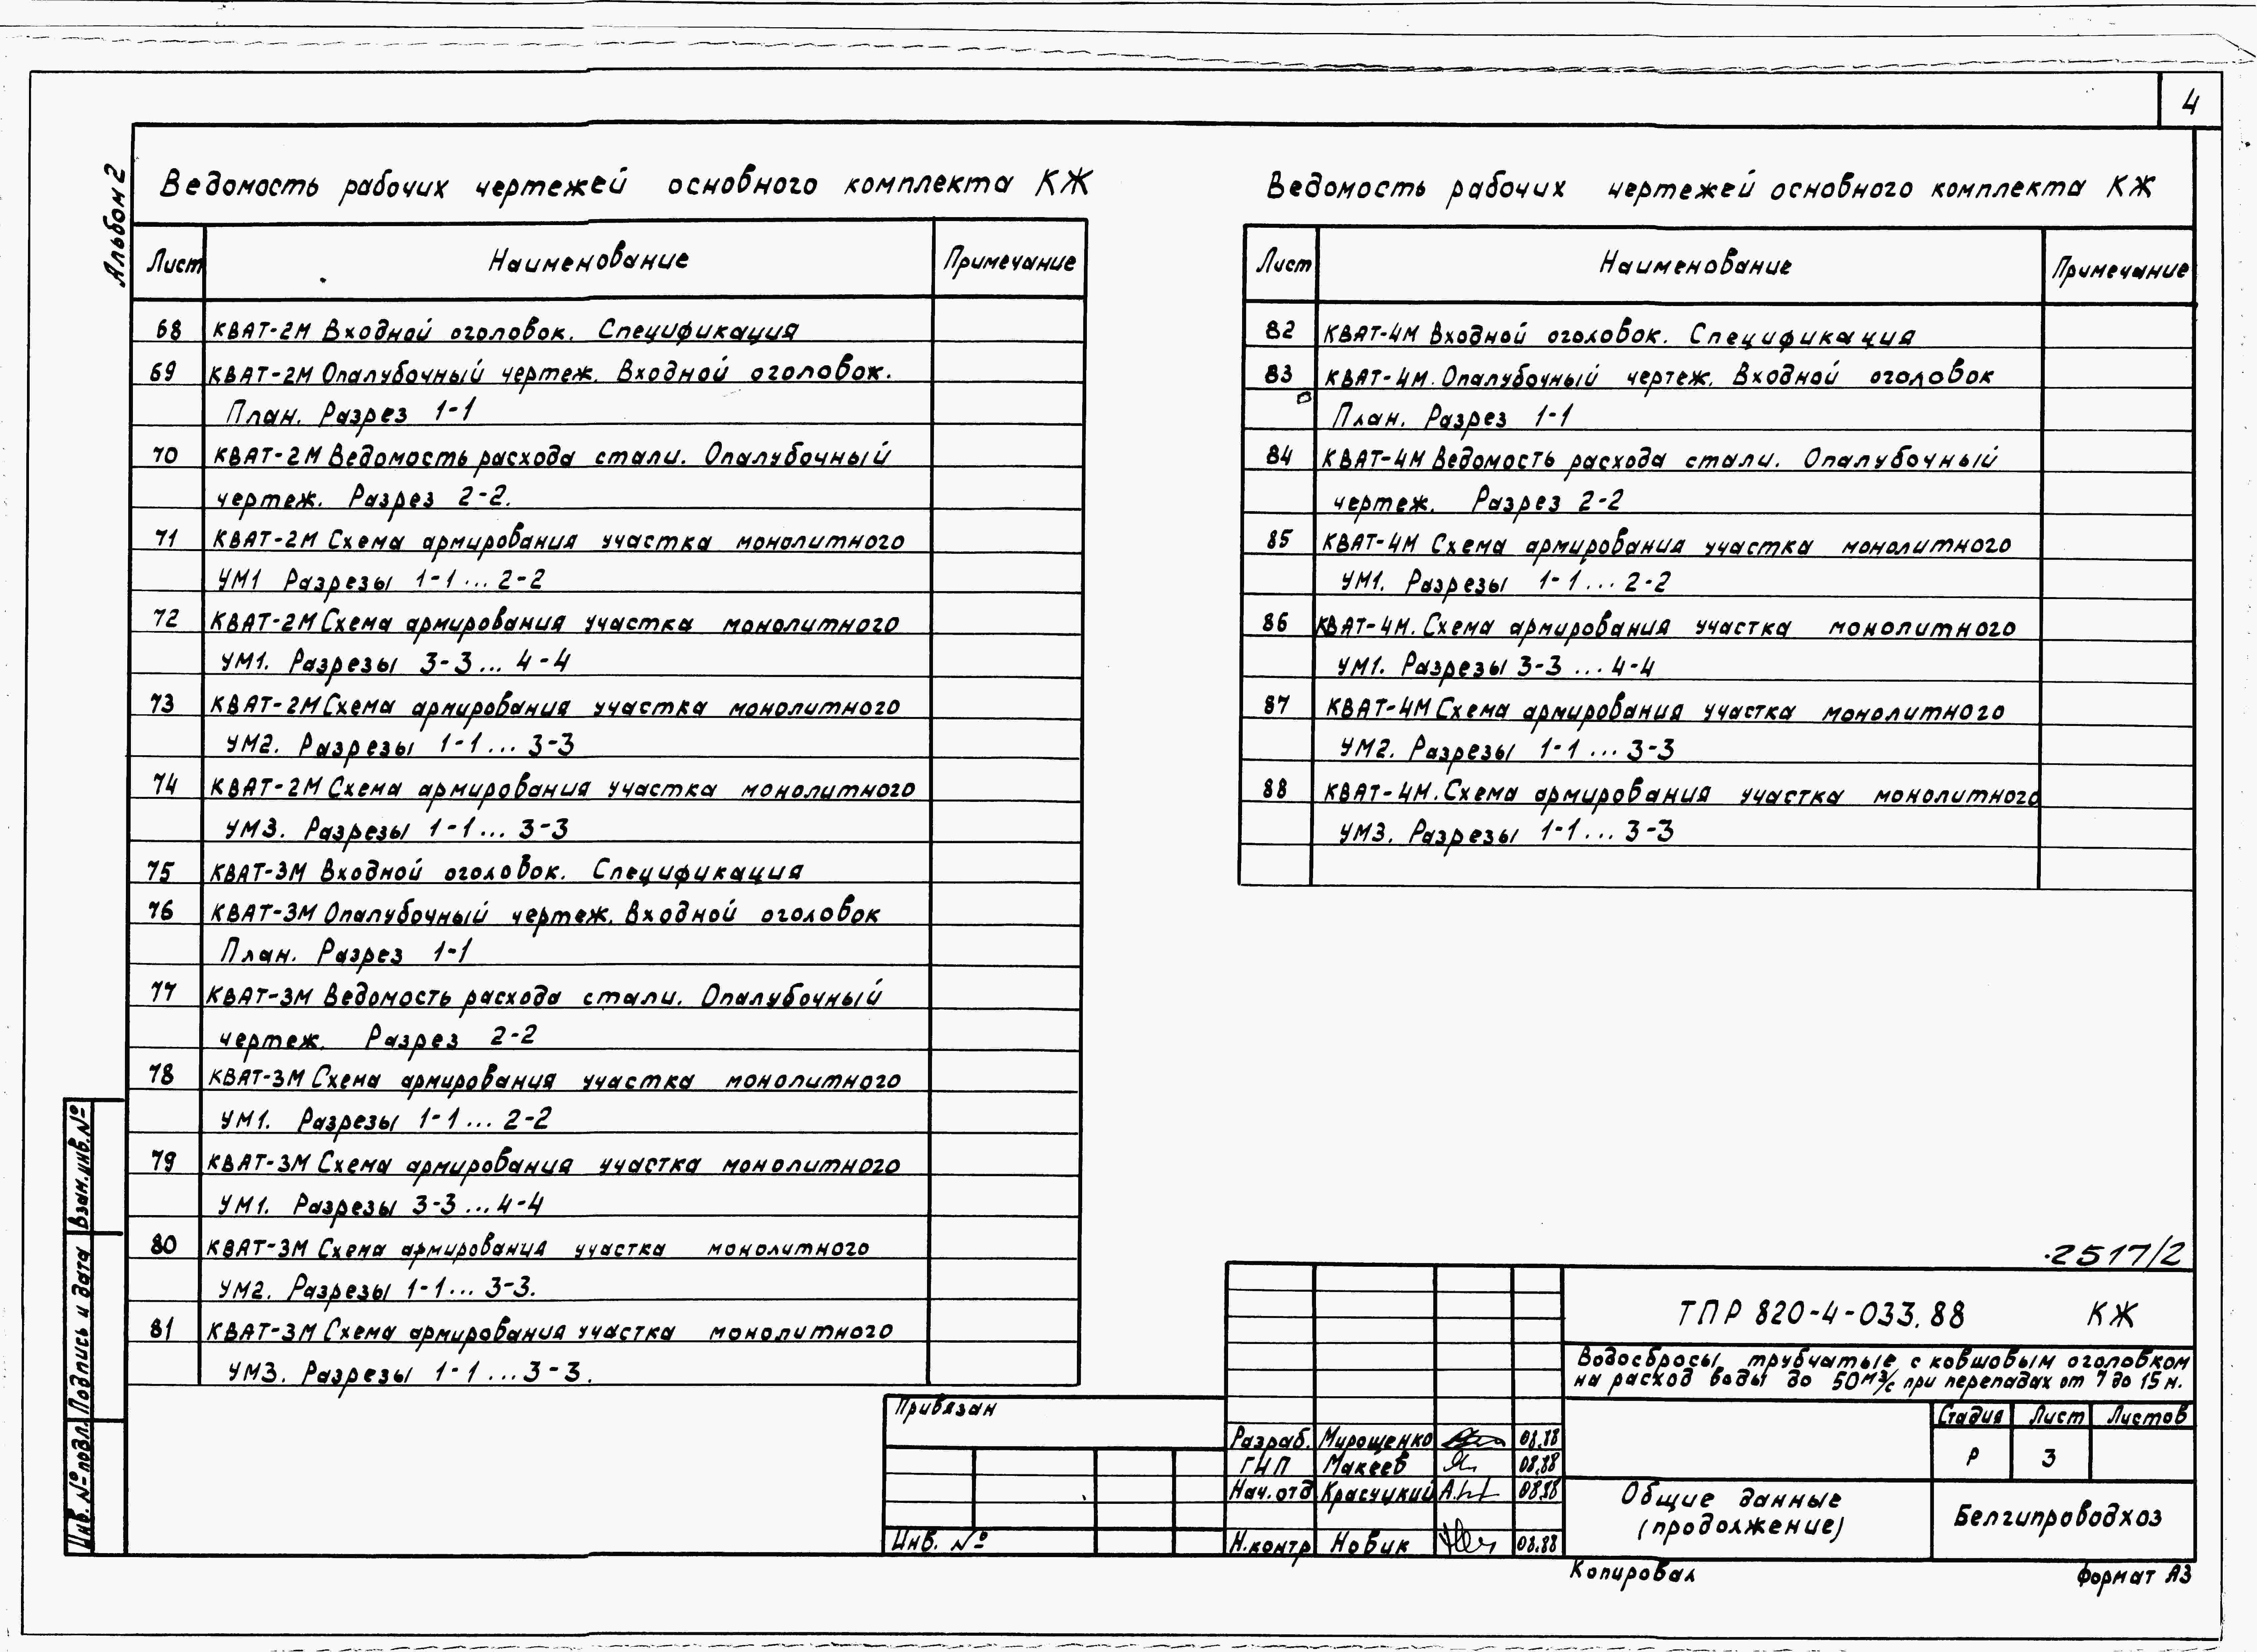 4
Альбом 2
Ведомость рабочих чертежей основного комплекта КЖ
Лист Наименование Примечание
68 КВАТ-2М Входной оголовок. Спецификация
69 КВАТ-2М Опалубочный чертеж. Входной оголовок.
План. Разрез 1-1
70 КВАТ-2М Ведомость расхода стали. Опалубочный
чертеж. Разрез 2-2.
71 КВАТ-2М Схема армирования участка монолитного
УМ1 Разрезы 1-1...2-2
72 КВАТ-2М Схема армирования участка монолитного
УМ1. Разрезы 3-3...4-4
73 КВАТ-2М Схема армирования участка монолитного
УМ2. Разрезы 1-1...3-3
74 КВАТ-2М Схема армирования участка монолитного
УМ3. Разрезы 1-1...3-3
75 КВАТ-3М Входной оголовок. Спецификация
76 КВАТ-3М Опалубочный чертеж. Входной оголовок
План. Разрез 1-1
77 КВАТ-3М Ведомость расхода стали. Опалубочный
чертеж. Разрез 2-2
78 КВАТ-3М Схема армирования участка монолитного
УМ1. Разрезы 1-1...2-2
79 КВАТ-3М Схема армирования участка монолитного
УМ1. Разрезы 3-3...4-4
80 КВАТ-3М Схема армирования участка монолитного
УМ2. Разрезы 1-1...3-3.
81 КВАТ-3М Схема армирования участка монолитного
УМ3. Разрезы 1-1...3-3.
Ведомость рабочих чертежей основного комплекта КЖ
Лист Наименование Примечание
82 КВАТ-4М Входной оголовок. Спецификация
83 КВАТ-4М. Опалубочный чертеж. Входной оголовок
План. Разрез 1-1
84 КВАТ-4М Ведомость расхода стали. Опалубочный
чертеж. Разрез 2-2
85 КВАТ-4М Схема армирования участка монолитного
УМ1. Разрезы 1-1...2-2
86 КВАТ-4М. Схема армирования участка монолитного
УМ1. Разрезы 3-3...4-4
87 КВАТ-4М Схема армирования участка монолитного
УМ2. Разрезы 1-1...3-3
88 КВАТ-4М. Схема армирования участка монолитного
УМ3. Разрезы 1-1...3-3
Взам.инв.№
Подпись и дата
Инв. № подл.
2517/2
ТПР 820-4-033.88 КЖ
Водосбросы трубчатые с ковшовым оголовком
на расход воды до 50 м³/с при перепадах от 7 до 15 м.
Стадия Лист Листов
Р 3
Общие данные
(продолжение)
Белгипроводхоз
Привязан
Инв. №
Разраб. Мирощенко 08.88
ГИП Макеев 08.88
Нач.отд Красуцкий 08.88
Н.контр Новик 08.88
Копировал Формат А3